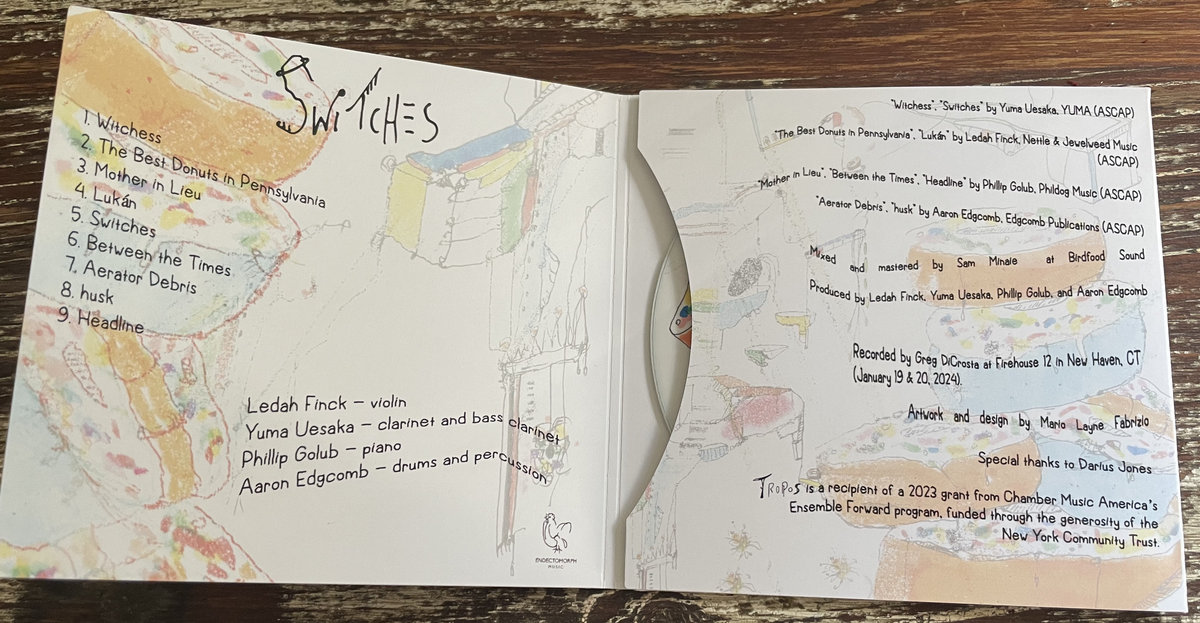 SWiTCHES
1. Witchess
2. The Best Donuts in Pennsylvania
3. Mother in Lieu
4. Lukán
5. Switches
6. Between the Times
7. Aerator Debris
8. husk
9. Headline
Ledah Finck – violin
Yuma Uesaka – clarinet and bass clarinet
Phillip Golub – piano
Aaron Edgcomb – drums and percussion
ENDECTOMORPH
MUSIC
"Witchess", "Switches" by Yuma Uesaka, YUMA (ASCAP)
"The Best Donuts in Pennsylvania", "Lukán" by Ledah Finck, Nettle & Jewelweed Music
(ASCAP)
"Mother in Lieu", "Between the Times", "Headline" by Phillip Golub, Phildog Music (ASCAP)
"Aerator Debris", "husk" by Aaron Edgcomb, Edgcomb Publications (ASCAP)
Mixed and mastered by Sam Minaie at Birdfood Sound
Produced by Ledah Finck, Yuma Uesaka, Phillip Golub, and Aaron Edgcomb
Recorded by Greg DiCrosta at Firehouse 12 in New Haven, CT
(January 19 & 20, 2024).
Artwork and design by Mario Layne Fabrizio
Special thanks to Darius Jones
TROPOS is a recipient of a 2023 grant from Chamber Music America's
Ensemble Forward program, funded through the generosity of the
New York Community Trust.